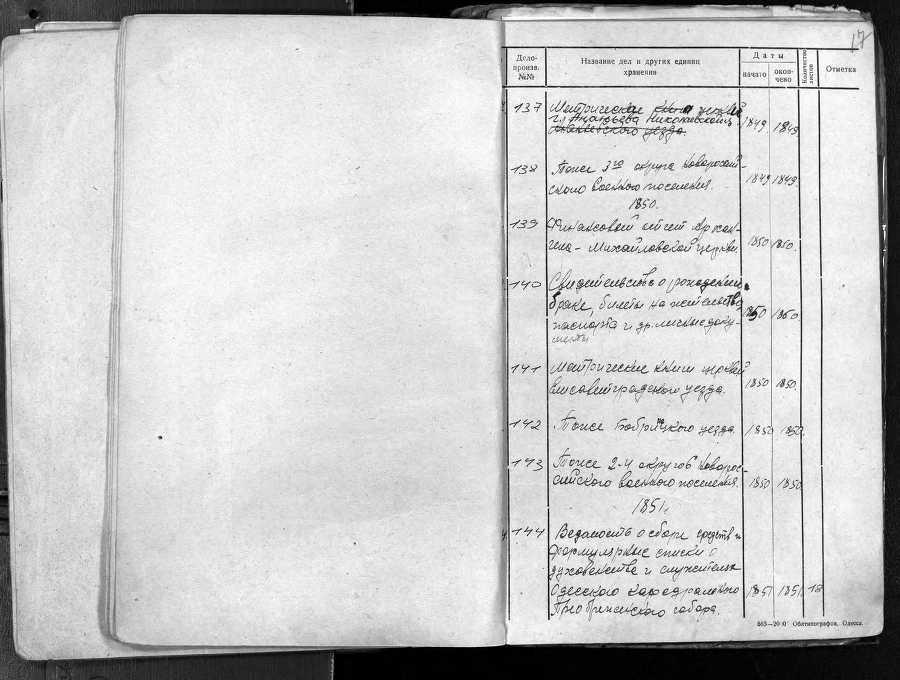 17
Дело-
произв.
№№
Название дел и других единиц
хранения
Даты
начато
окон-
чено
Количество
листов
Отметка
137 Метрическая книга церквей
г. Ананьева Николаевской
1849 1849
138 Тоже 3го округа Новороссий-
ского военного поселения. 1849 1849.
1850.
139 Финансовый отчет Архан-
гело-Михайловской церкви. 1850 1850.
140 Свидетельства о рождении,
браке, билеты на жительство, 1850 1850.
паспорта и др. личные доку-
менты
141 Метрические книги церквей
Елисаветградского уезда. 1850 1850.
142 Тоже Бобринецкого уезда. 1850 1850.
143 Тоже 2-4 округов Новорос-
сийского военного поселения. 1850 1850
1851г.
144 Ведомость о сборе средств и
формулярные списки о
духовенстве и служителях
Одесского кафедрального 1851 1851 18
Преображенского собора.
Облтипография, Одесса.